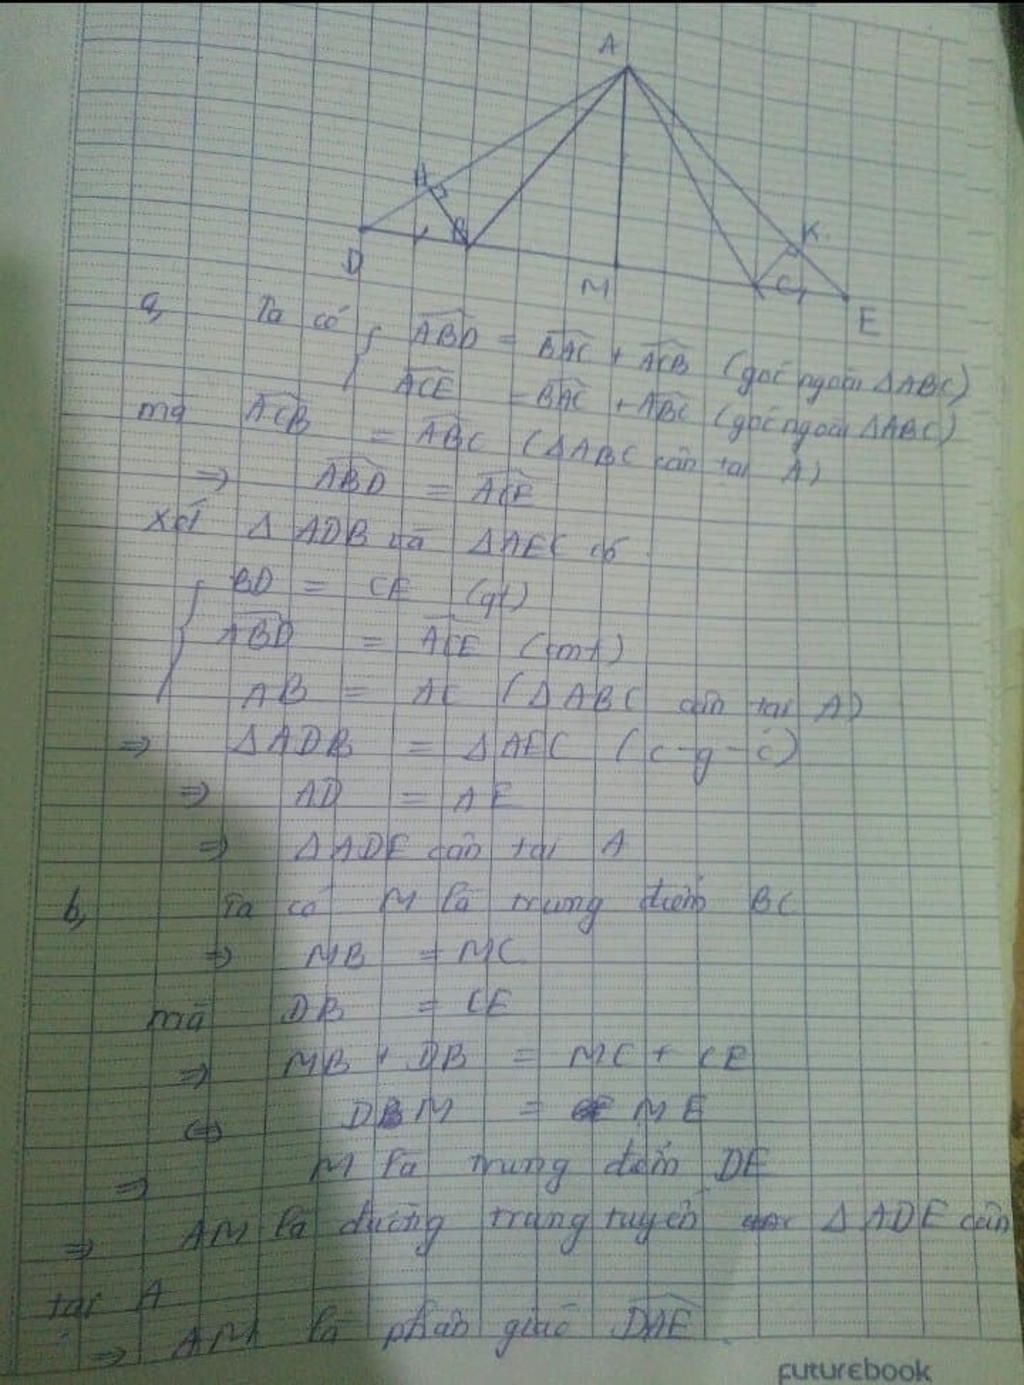 A
H
K
D
B
M
C
E
a, Ta có { ABD = BAC + ACB (góc ngoài ΔABC)
ACE = BAC + ABC (góc ngoài ΔABC)
mà ACB = ABC (ΔABC cân tại A)
⇒ ABD = ACE
Xét ΔADB và ΔAEC có
{ BD = CE (gt)
ABD = ACE (cmt)
AB = AC (ΔABC cân tại A)
⇒ ΔADB = ΔAEC (c-g-c)
⇒ AD = AE
⇒ ΔADE cân tại A
b, Ta có M là trung điểm BC
⇒ MB = MC
mà DB = CE
⇒ MB + DB = MC + CE
⇔ DM = ME
⇒ M là trung điểm DE
⇒ AM là đường trung tuyến ΔADE cân
tại A
⇒ AM là phân giác DAE
futurebook